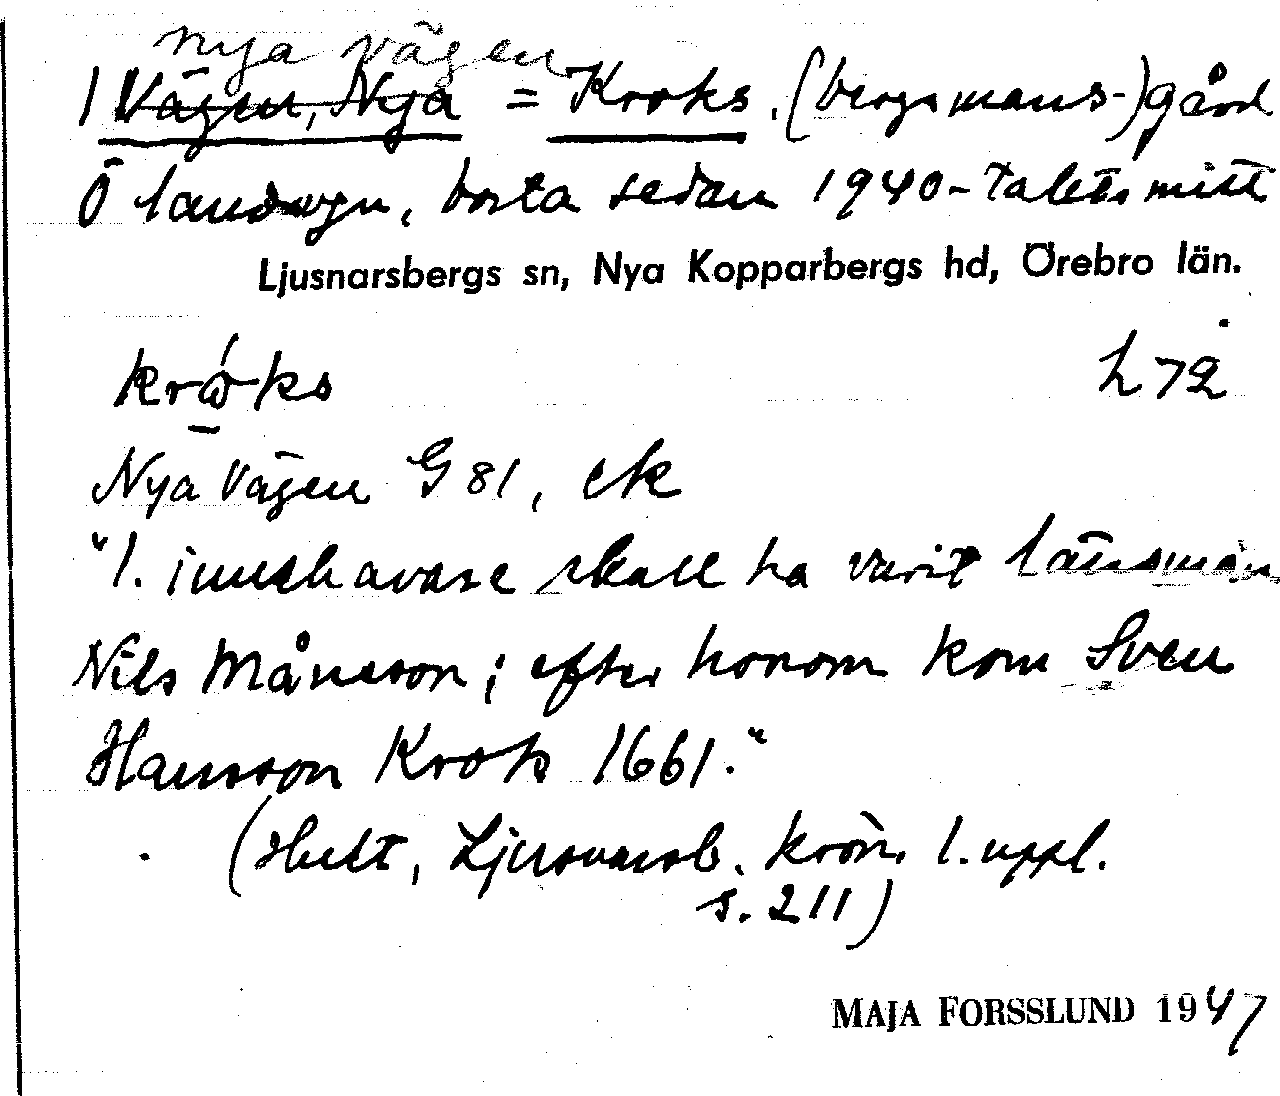 nya vägen
1 Vägen, Nya = Kroks. (bergsmans-)gård
Ö landsvägen, borta sedan 1940-talets mitt
Ljusnarsbergs sn, Nya Kopparbergs hd, Örebro län.
L 72
Nya Vägen G 81, ek
"1. innehavare skall ha varit länsman
Nils Månsson; efter honom kom Sven
Hansson Krok 1661."
(Hult, Ljusnarsb. krön. 1. uppl.
s. 211)
MAJA FORSSLUND 1947